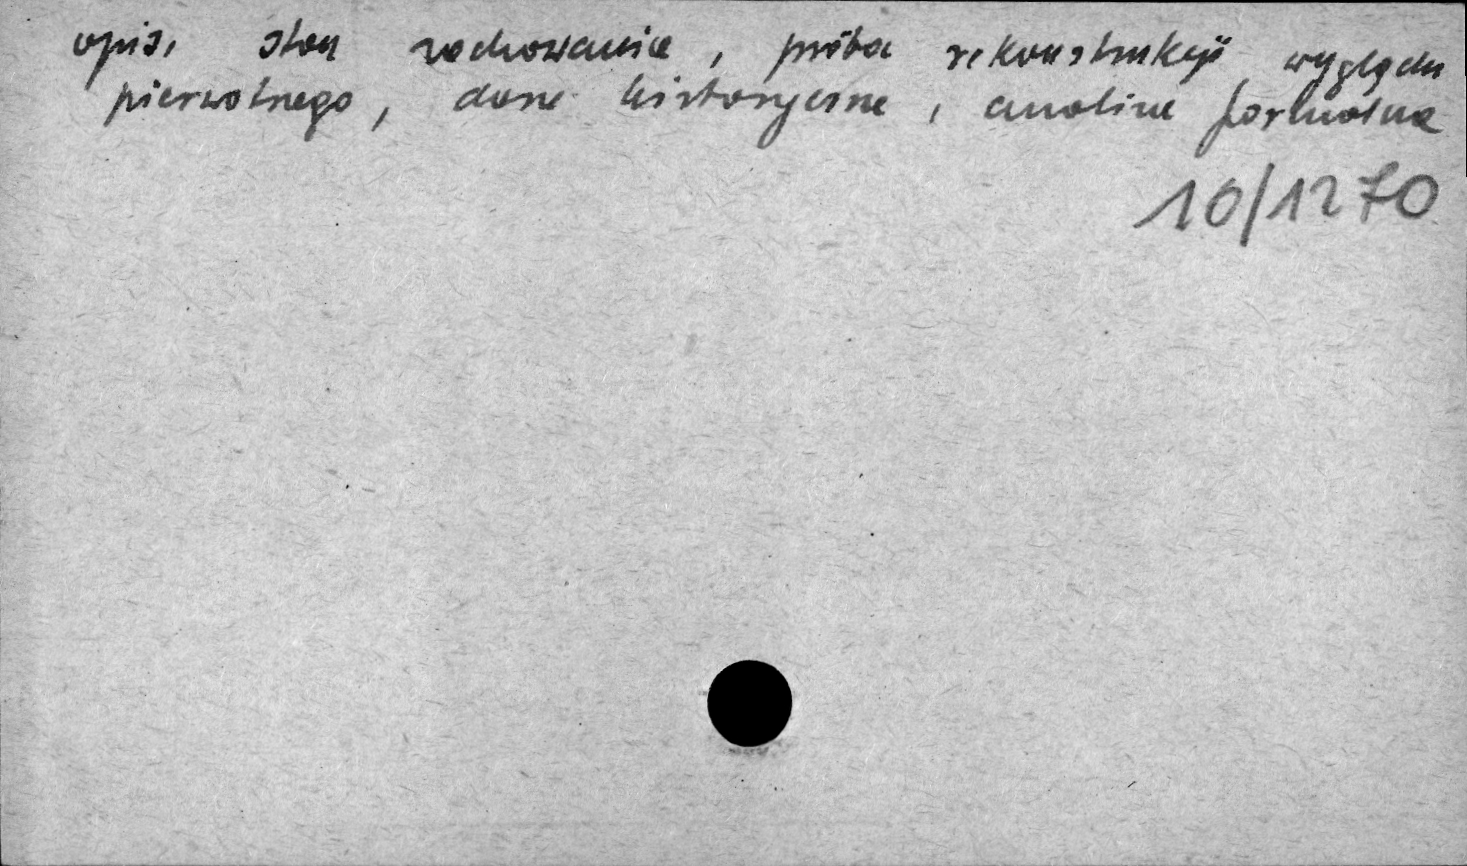 opis, stan zachowania, próba rekonstrukcji, wyglądu
pierwotnego, dane historyczne, analiza formalna
10/1270